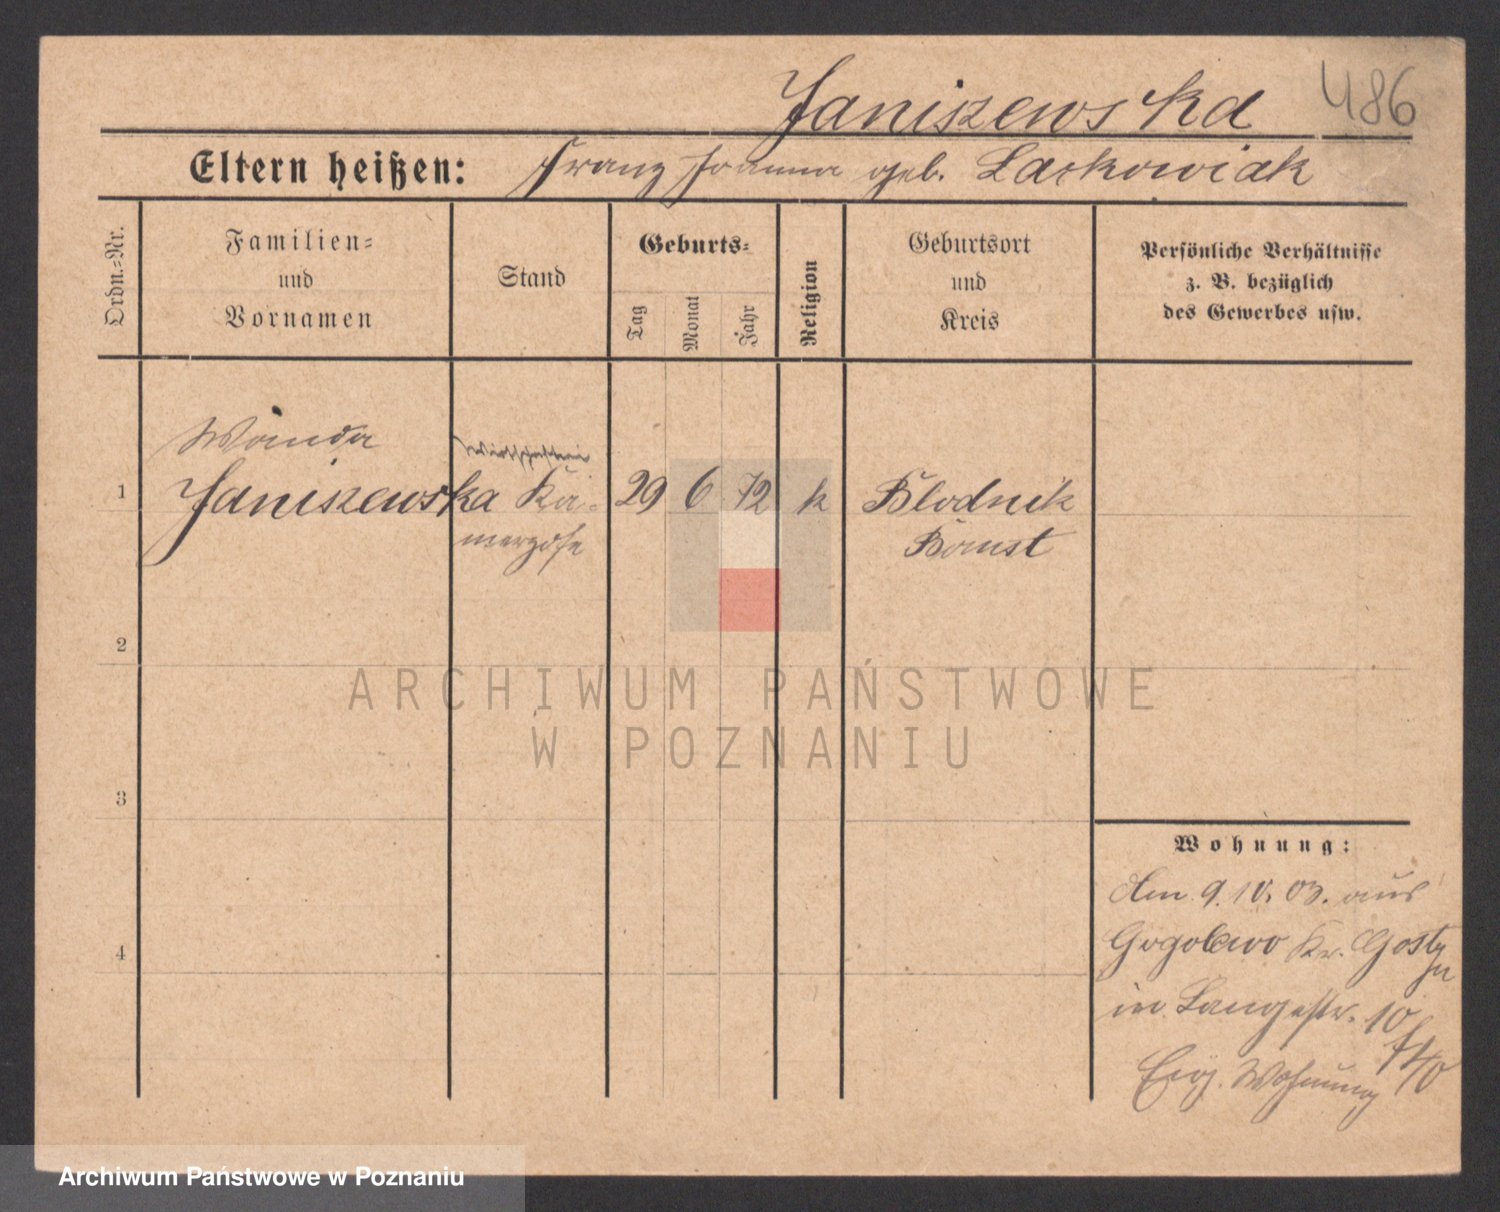 Janiszewska 486
Eltern heißen: Franz Joanna geb. Lackowiak
Ordn.-Nr.
Familien-
und
Vornamen
Stand
Geburts-
Tag
Monat
Jahr
Religion
Geburtsort
und
Kreis
Persönliche Verhältnisse
z. B. bezüglich
des Gewerbes usw.
Wanda
1 Janiszewska 29 6 72 k Blodnik
Bomst
2
3
4
ARCHIWUM PAŃSTWOWE
W POZNANIU
Wohnung:
Am 9. 10. 03. aus
Gogolewo Kr. Gostyn
in Langestr. 10
Wohnung
Archiwum Państwowe w Poznaniu